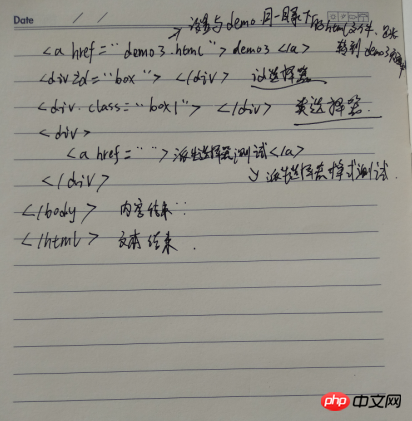 Date / /
与demo同一目录下的html文件,
<a href="demo3.html"> demo3 </a> 转到demo3
<div id="box"> </div> id选择器
<div class="box1"> </div> 类选择器
<div>
<a href=""> 派生选择器测试</a>
</div> 派生选择器样式测试.
</body> 内容结束
</html> 文本结束.
php 中文网